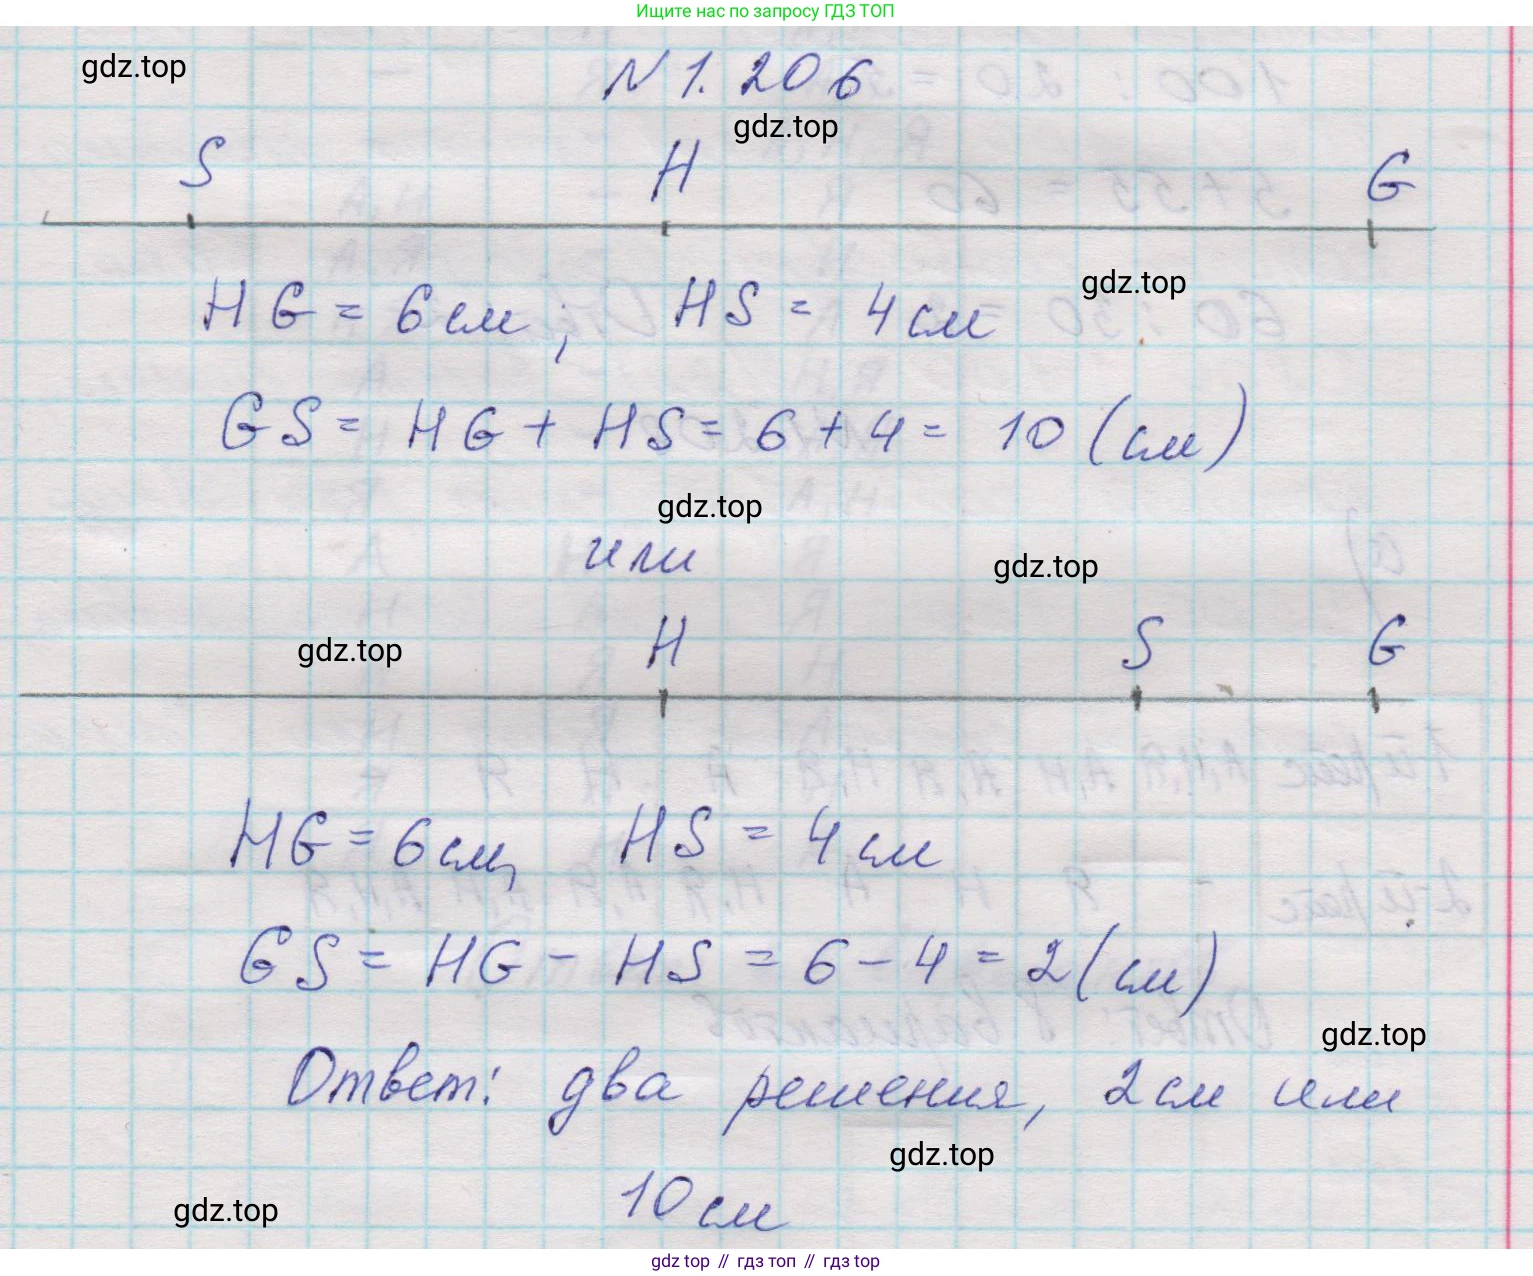 Ищите нас по запросу ГДЗ ТОП
gdz.top
N 1. 206
gdz.top
S H G
gdz.top
HG = 6 см; HS = 4 см
GS = HG + HS = 6 + 4 = 10 (см)
gdz.top
или
gdz.top
gdz.top
H S G
HG = 6 см, HS = 4 см
GS = HG - HS = 6 - 4 = 2 (см)
gdz.top
Ответ: два решения, 2 см или
gdz.top
10 см
gdz.top
gdz top // гдз топ // гдз top